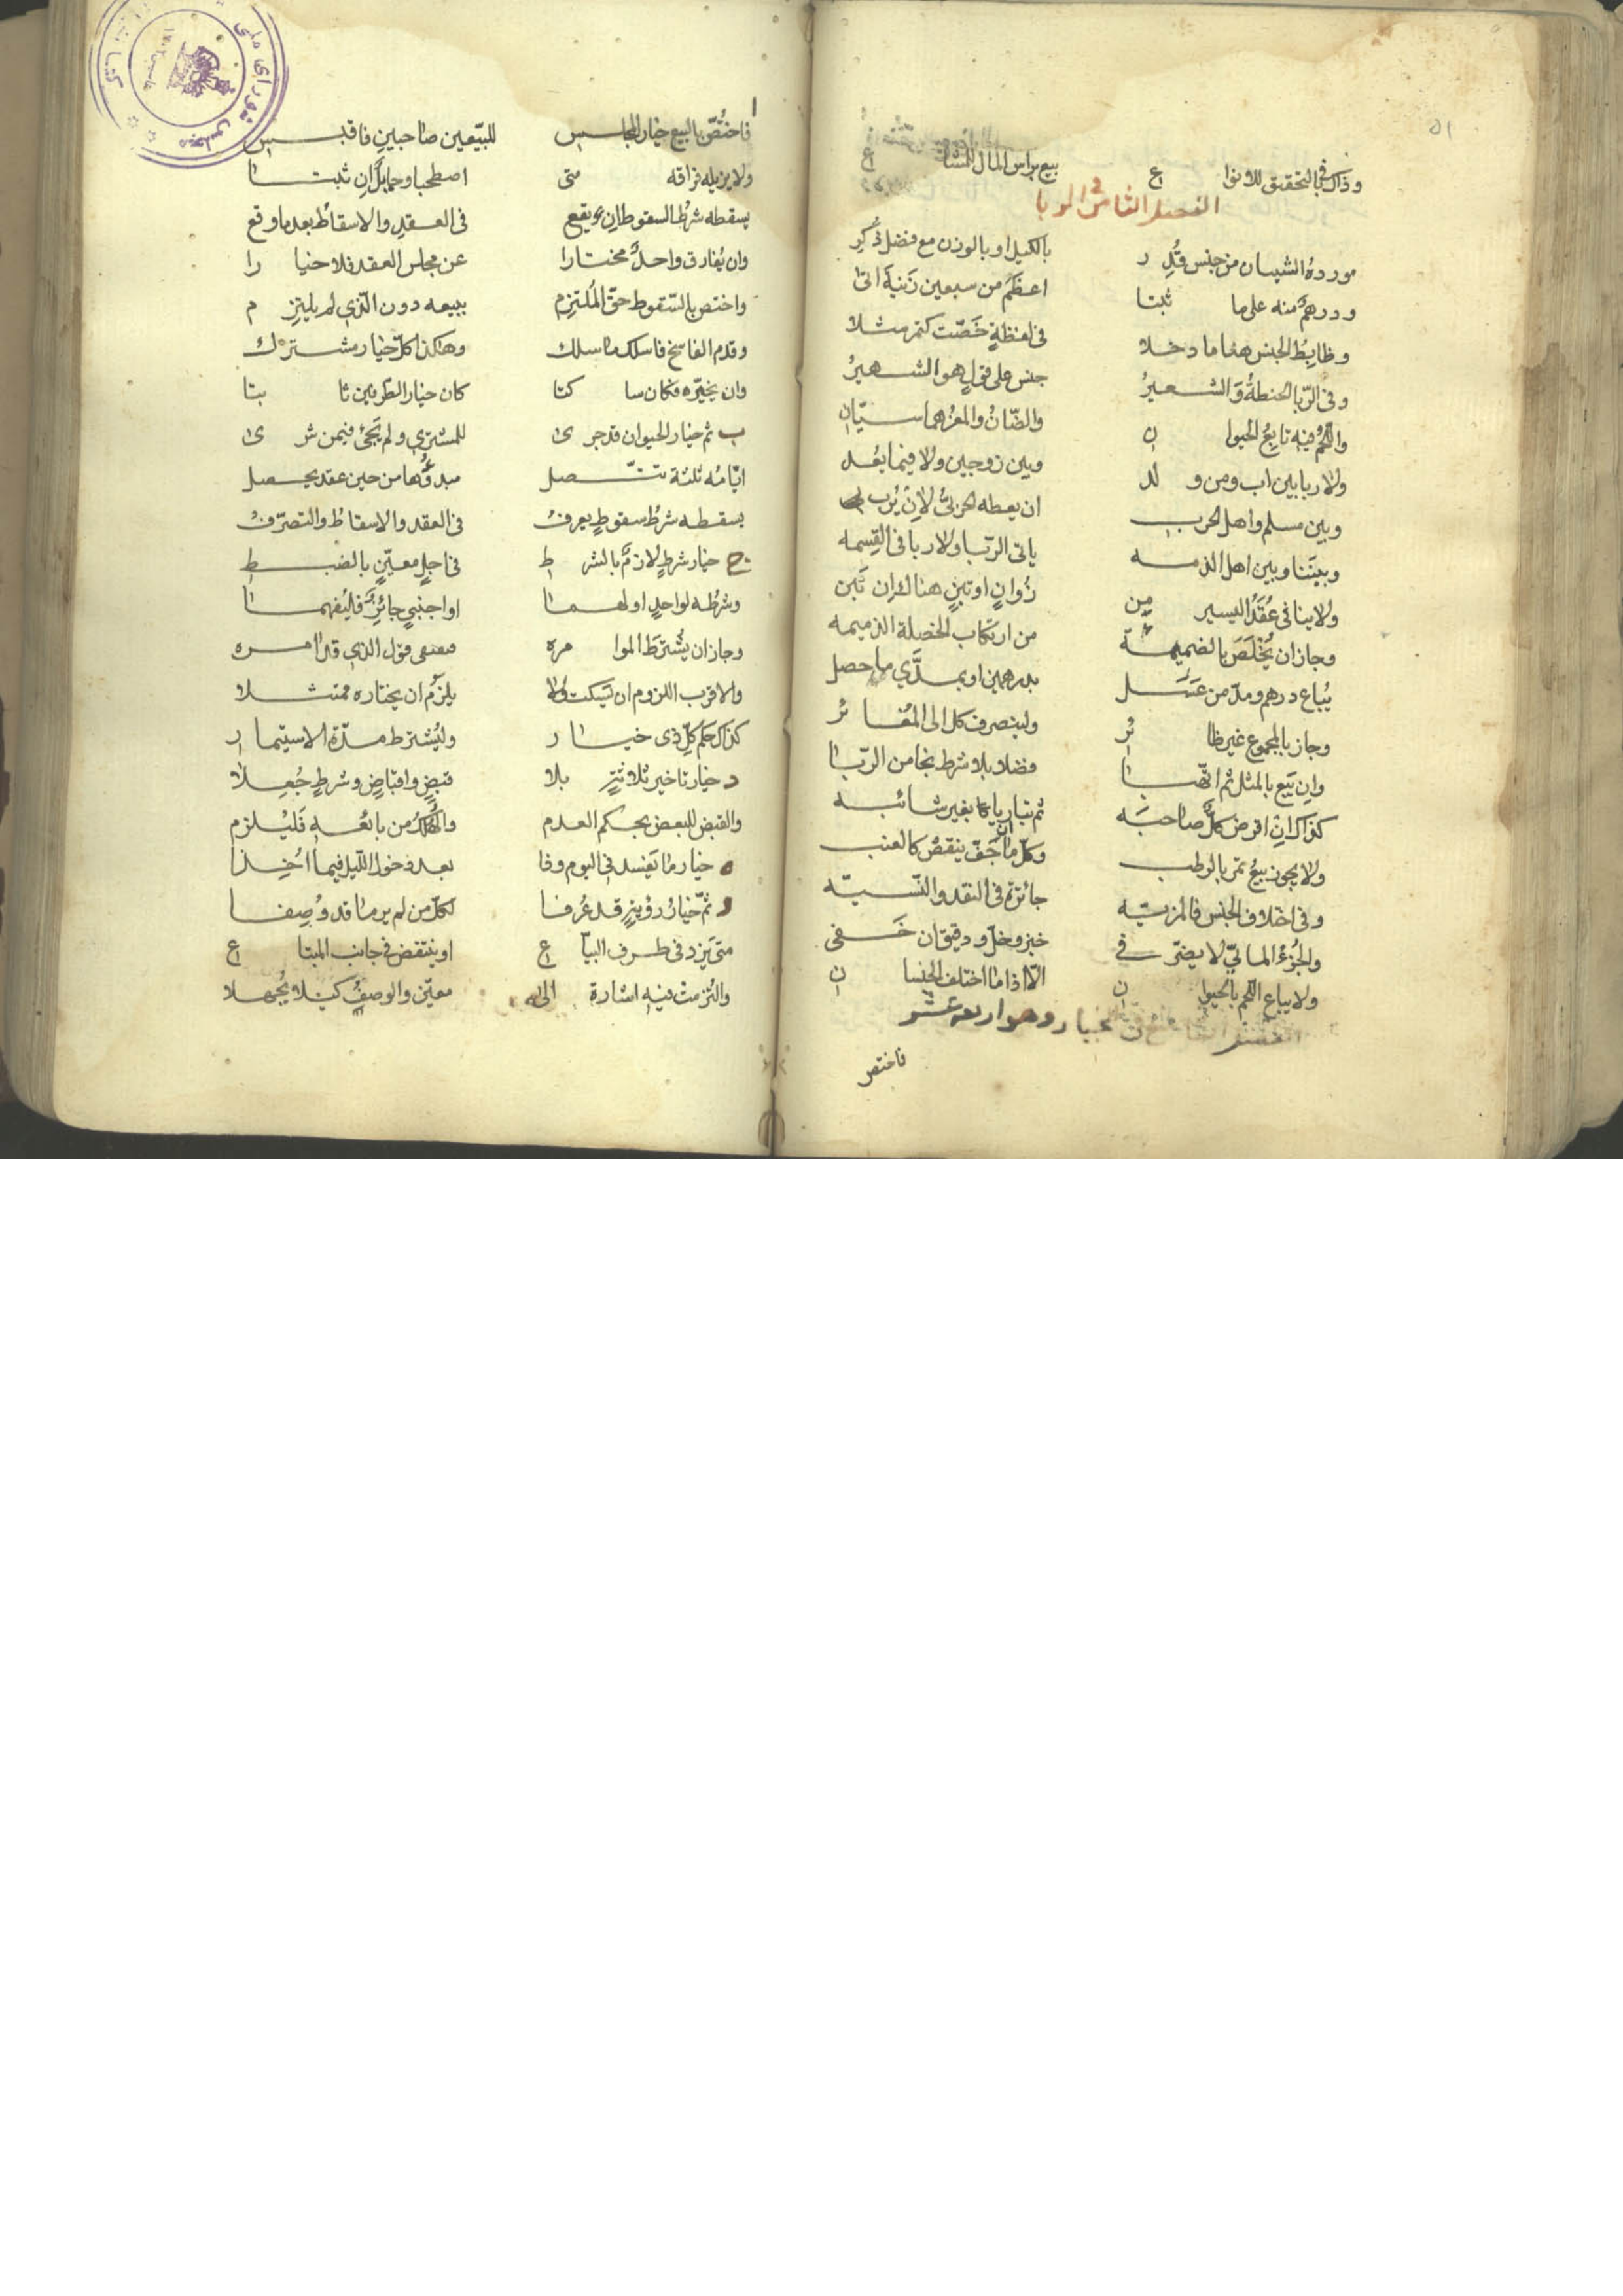 ٥١
وذاك في التحقيق للانواع بيع براس المال للمشاع
الفصل الثامن في الربا
مورده الشيئان من جنس قدر بالكيل او بالوزن مع فضل ذكر
ودرهم منه على ما ثبتا اعظم من سبعين زنية اتى
وضابط الجنس هنا ما دخلا في لفظة خصت كتمر مثلا
وفي الربا الحنطة والشعير جنس على قول هو الشهير
واللحم فيه تابع الحيوان والضان والمعز هما سيان
ولا ربا بين اب ومن ولد وبين زوجين ولا فيما يعد
وبين مسلم واهل الحرب ان يعطه الحربي لا ان يربي
وبيننا وبين اهل الذمه ياتي الربا ولا ربا في القسمه
ولا ينافي عقد اليسير من زوان او تبن هنالك ان تبن
وجاز ان يخلص بالضميمة من ارتكاب الخصلة الذميمه
يباع درهم ومد من عسل بدرهمين او بمدي ما حصل
وجاز بالمجموع غير ظائر ولينصرف كل الى المغائر
وان بيع بالمثل ثم اتهبا فضلا بلا شرط نجا من الربا
كذاك ان اقرض كل صاحبه ثم تباريا بغير شائبه
ولا يجوز بيع تمر بالرطب وكل ما جف ينقص كالعنب
وفي اختلاف الجنس فالمزيه جائزة في النقد والنسيه
والجزء المائي لا يضر في خبز وخل ودقيق ان خفي
ولا يباع اللحم بالحيوان الا اذا ما اختلف الجنسان
الخيار وهو اربعة عشر
فاختص
ا فاختص بالبيع خيار المجلس للبيعين صاحبين فاقبس
ولا يزيله فراقه متى اصطحبا وحايل ان ثبتا
يسقطه شرط السقوط ان يقع في العقد والاسقاط بعد ما وقع
وان يفارق واحد مختارا عن مجلس العقد فلا خيارا
واختص بالسقوط حق الملتزم ببيعه دون الذي لم يلتزم
وقدم الفاسخ فاسلك ما سلك وهكذا كل خيار مشترك
وان يخيره فكان ساكتا كان خيار الطرفين ثابتا
ب ثم خيار الحيوان قد جرى للمشتري ولم يجئ فيمن شرى
ايامه ثلثة تتصل مبدؤها من حين عقد يحصل
يسقطه شرط سقوط يعرف في العقد والاسقاط والتصرف
ج خيار شرط لازم بالشرط في اجل معين بالضبط
وشرطه لواحد او لهما او اجنبي جائز فليفهما
وجاز ان يشترط الموامره فعنى قول الذي قد امره
والاقرب اللزوم ان يسكت ولا يلزم ان يختاره ممتثلا
كذاك حكم كل ذي خيار وليشترط مدة الاستيمار
د خيار تاخير ثلاثة بلا قبض واقباض وشرط جعلا
والقبض للبعض بحكم العدم والهلك من بائعه فليلزم
ه خيار ما يفسد في اليوم وفا بعد دخول الليل فيما اخذا
و ثم خيار رؤية قد عرفا لكل من لم ير ما قد وصفا
متى يزد في طرف البياع او ينتقض في جانب المبتاع
والتزمت فيه اشارة الى معين والوصف كيلا يجهلا